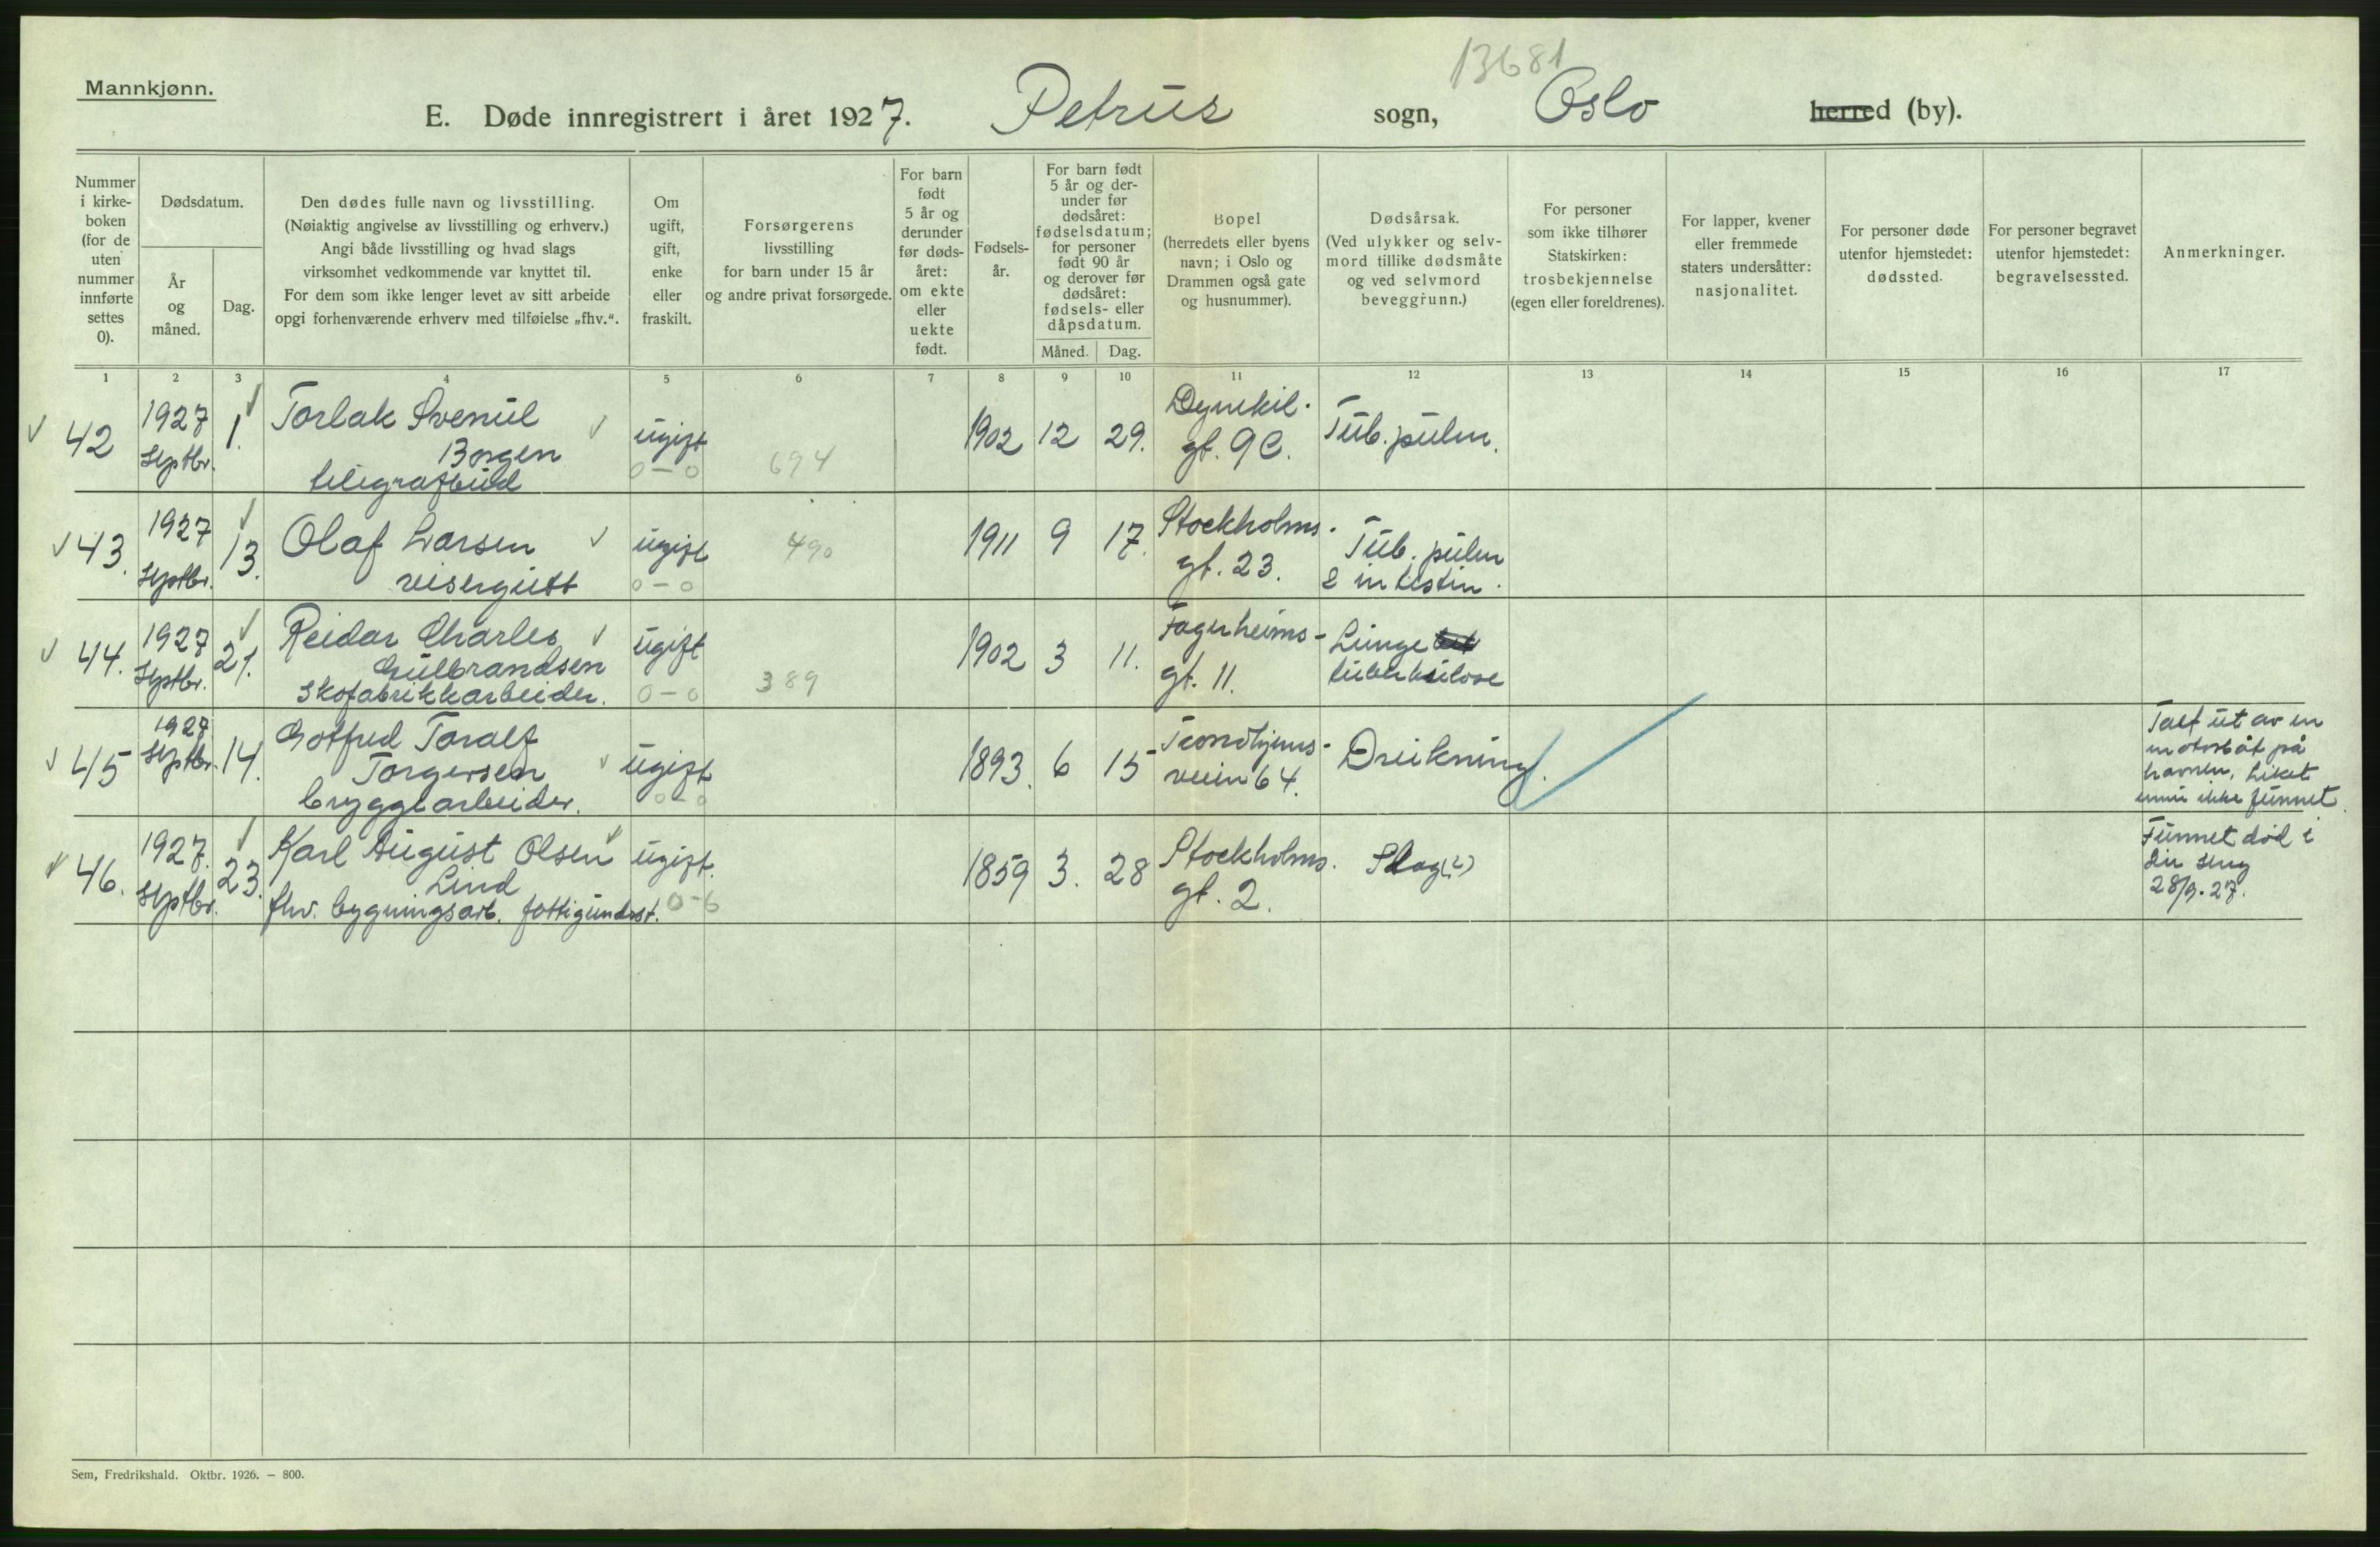 13681
Mannkjønn.
E. Døde innregistrert i året 1927. Petrus sogn, Oslo herred (by).
Nummer
i kirke-
boken
(for de
uten
nummer
innførte
settes
0).
Dødsdatum.
År
og
måned.
Dag.
Den dødes fulle navn og livsstilling.
(Nøiaktig angivelse av livsstilling og erhverv.)
Angi både livsstilling og hvad slags
virksomhet vedkommende var knyttet til.
For dem som ikke lenger levet av sitt arbeide
opgi forhenværende erhverv med tilføielse „fhv.“.
Om
ugift,
gift,
enke
eller
fraskilt.
Forsørgerens
livsstilling
for barn under 15 år
og andre privat forsørgede.
For barn
født
5 år og
derunder
før døds-
året:
om ekte
eller
uekte
født.
Fødsels-
år.
For barn født
5 år og der-
under før
dødsåret:
fødselsdatum;
for personer
født 90 år
og derover før
dødsåret:
fødsels- eller
dåpsdatum.
Måned. Dag.
Bopel
(herredets eller byens
navn; i Oslo og
Drammen også gate
og husnummer).
Dødsårsak.
(Ved ulykker og selv-
mord tillike dødsmåte
og ved selvmord
beveggrunn.)
For personer
som ikke tilhører
Statskirken:
trosbekjennelse
(egen eller foreldrenes).
For lapper, kvener
eller fremmede
staters undersåtter:
nasjonalitet.
For personer døde
utenfor hjemstedet:
dødssted.
For personer begravet
utenfor hjemstedet:
begravelsessted.
Anmerkninger.
1 2 3 4 5 6 7 8 9 10 11 12 13 14 15 16 17
42
1927
Septbr.
1.
Torlak Svenul
Borgen
telegrafbud
ugift
0-0
694
1902 12 29.
Dynekil-
gt. 9C.
Tub. pulm.
43.
1927
Septbr.
13.
Olaf Larsen
visergutt
ugift
0-0
490
1911 9 17.
Stockholms-
gt. 23.
Tub. pulm
& intestin.
44.
1927
Septbr.
21.
Reidar Charles
Gulbrandsen
skofabrikkarbeider.
ugift
0-0
389
1902 3 11.
Fagerheims-
gt. 11.
Lunge
tuberkulose
45
1927
Septbr.
14.
Gotfred Toralf
Torgersen
bryggearbeider.
ugift
0-0
1893. 6 15
Trondhjems-
veien 64.
Drukning.
Falt ut av en
motorbåt på
havnen. Liket
ennu ikke funnet.
46.
1927.
Septbr.
23.
Karl August Olsen
Lind
fhv. bygningsarb. fattigunderst.
ugift.
0-6
1859 3. 28
Stockholms.
gt. 2.
Slag(?)
Funnet død i
sin seng
28/9.27.
Sem, Fredrikshald. Oktbr. 1926. – 800.